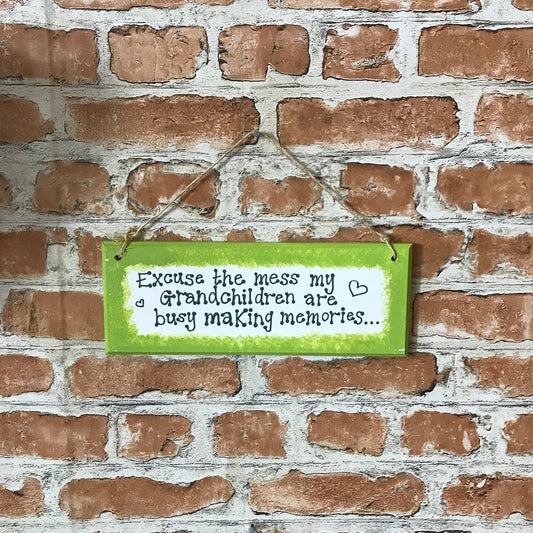 Excuse the mess my
Grandchildren are
busy making memories...